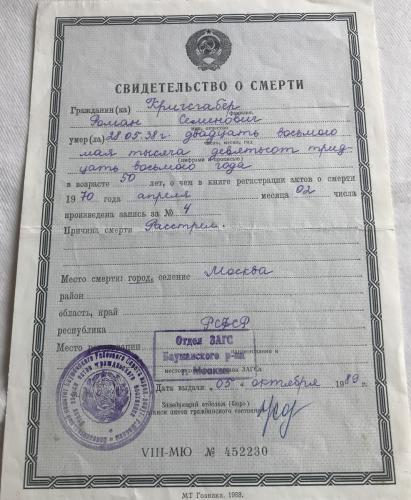 СВИДЕТЕЛЬСТВО О СМЕРТИ
Гражданин(ка) Кригсгабер
фамилия,
Роман Семенович
имя, отчество
умер(ла) 28.05.38 г. двадцать восьмого
число, месяц, год
мая тысяча девятьсот трид
(цифрами и прописью)
цать восьмого года
в возрасте 50 лет, о чем в книге регистрации актов о смерти
1970 года апреля месяца 02 числа
произведена запись за № 4
Причина смерти Расстрел.
Место смерти: город, селение Москва
район
область, край
республика РСФСР
Место регистрации
Отдел ЗАГС
Бауманского р-на
г. Москвы
Дата выдачи «05» октября 1989 г.
Заведующий отделом (бюро)
записи актов гражданского состояния
VIII-МЮ № 452230
МТ Гознака. 1988.